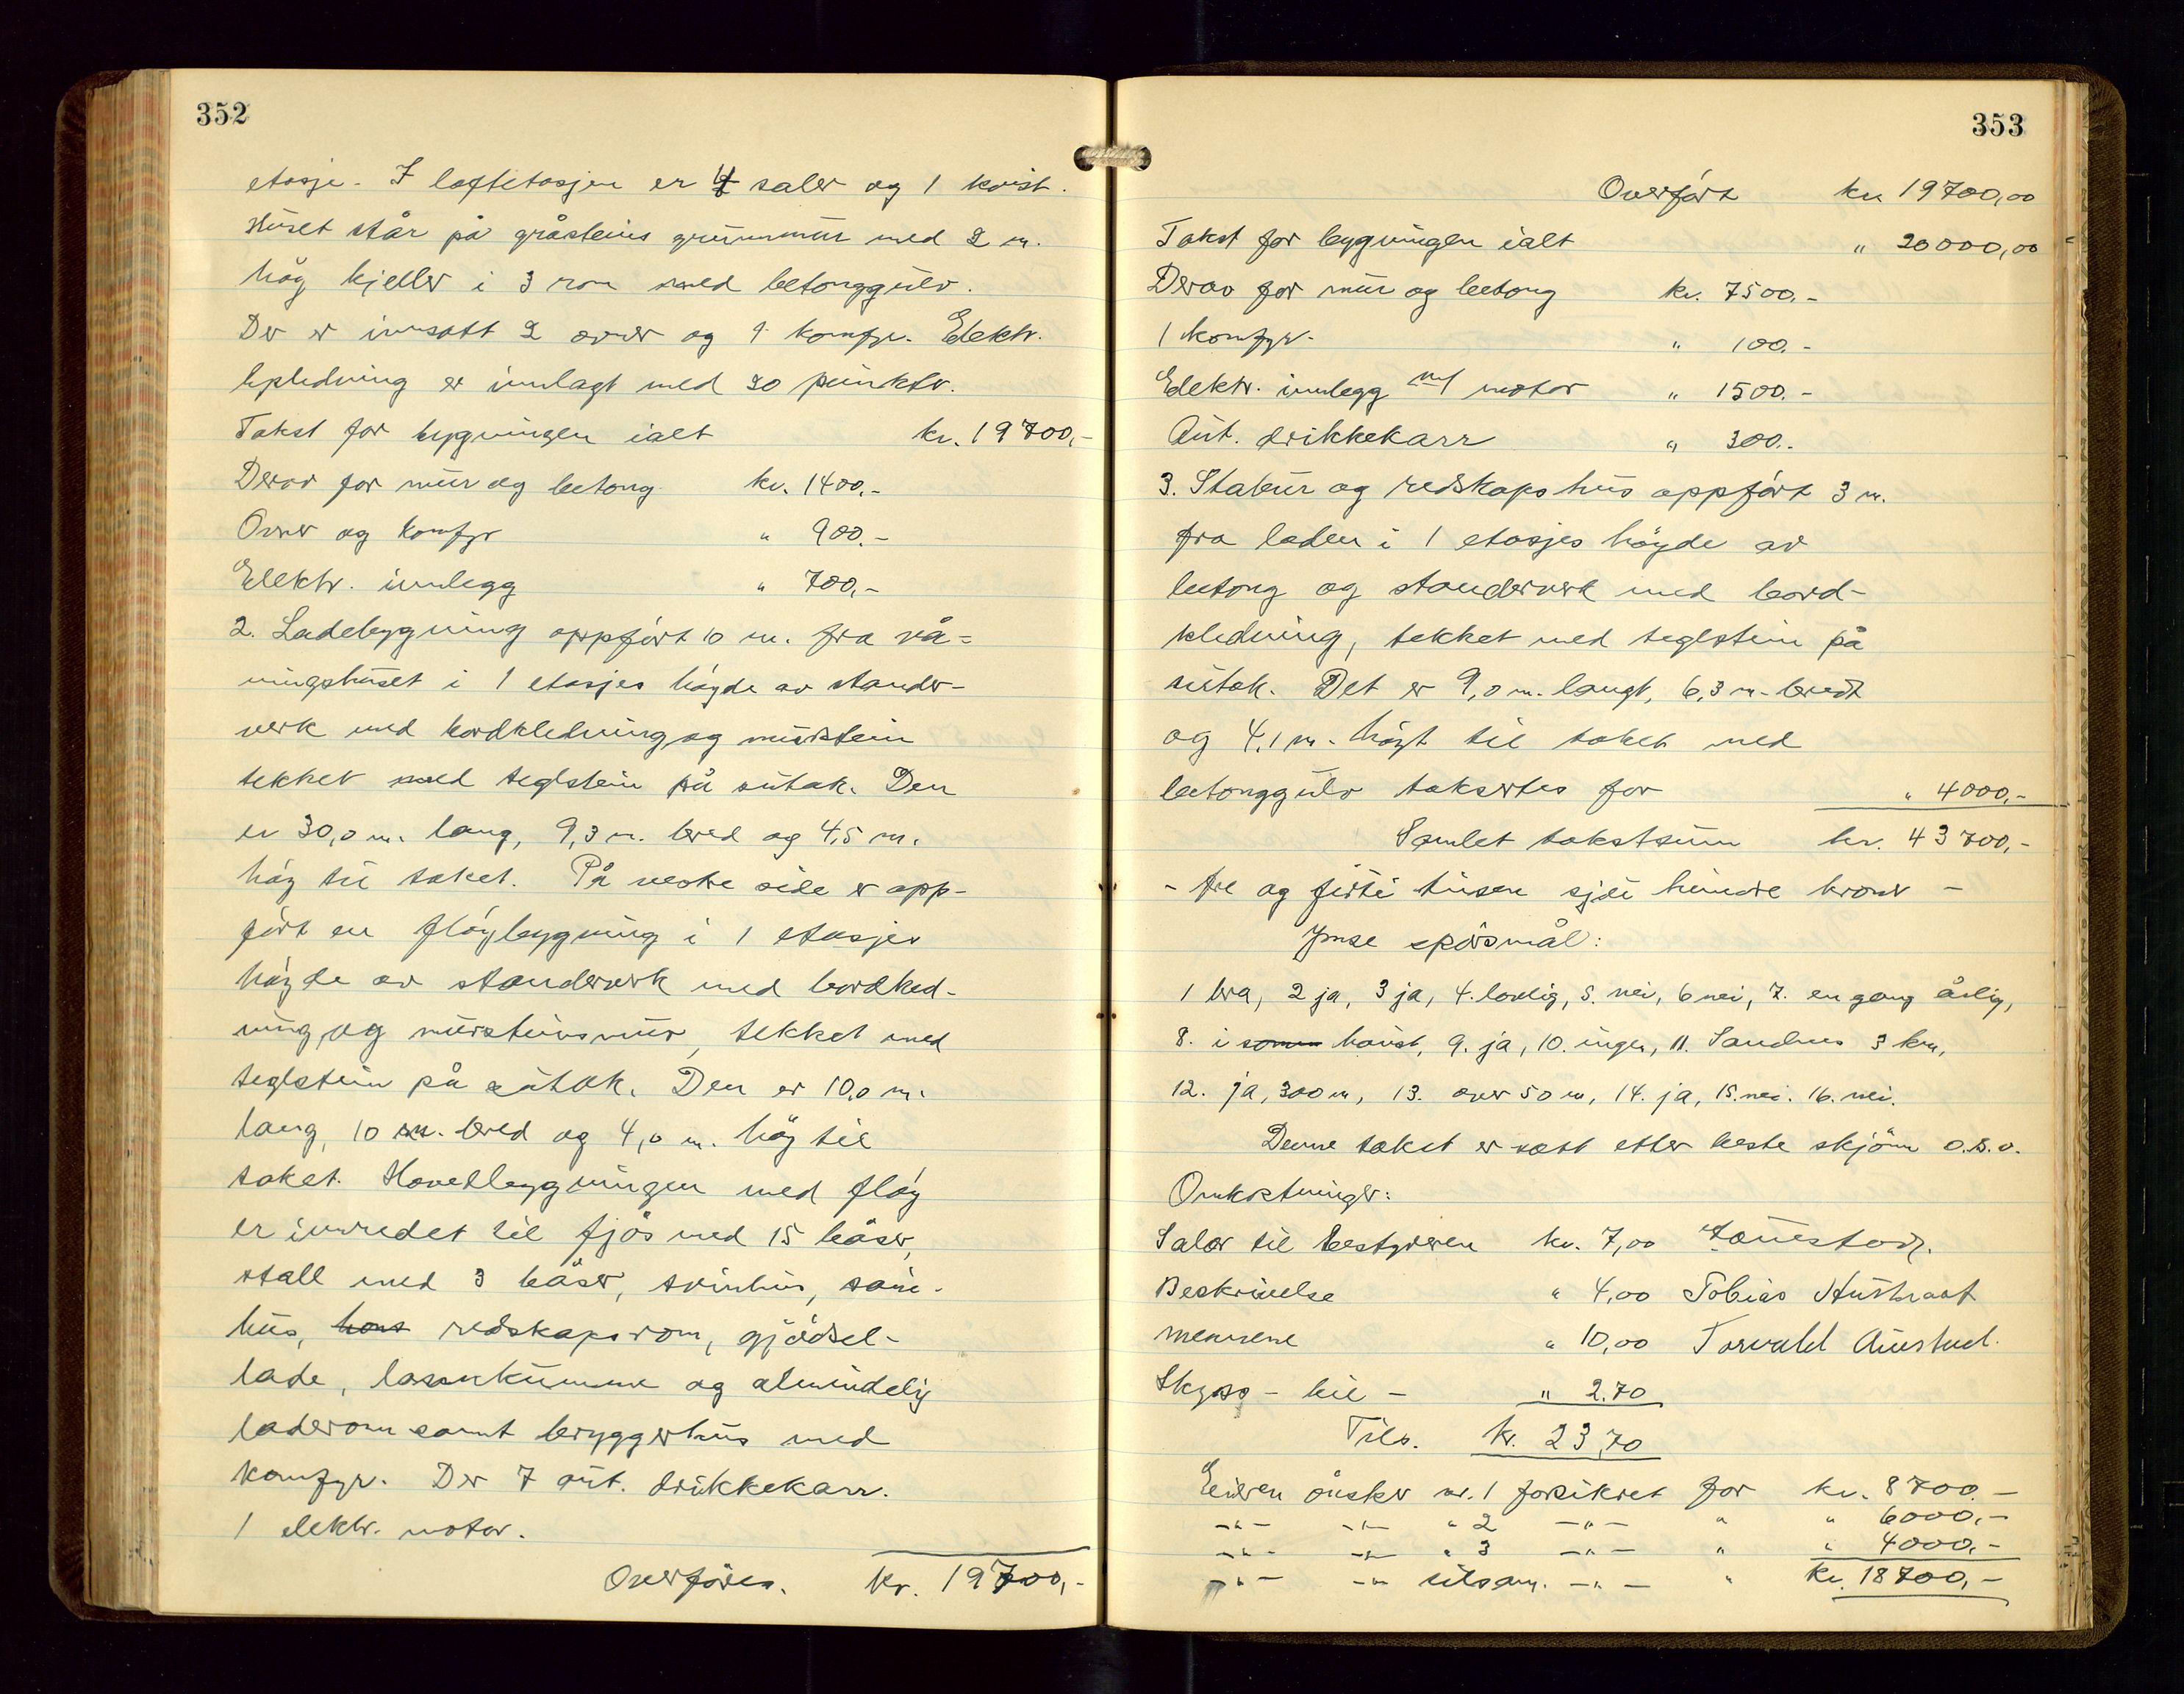 352
etasje. I loftetasjen er 4 saler og 1 kvist.
Huset står på gråsteins grunnmur med 2 m.
høg kjeller i 3 rom med betonggulv.
Der er innsatt 2 ovner og 1 komfyr. Elektr.
lysledning er innlagt med 20 punkter.
Takst for bygningen ialt kr. 19700,-
Derav for mur og betong kr. 1400.-
Ovner og komfyr " 900.-
Elektr. innlegg " 700,-
2. Ladebygning oppført 10 m. fra vå=
ningshuset i 1 etasjes høyde av stander-
verk med bordkledning og murstein
tekket med teglstein på sutak. Den
er 30,0 m. lang, 9,3 m. bred og 4,5 m.
høg til taket. På vestre side er opp-
ført en fløybygning i 1 etasjes
høyde av standerverk med bordked-
ning og mursteinsmur, tekket med
teglstein på sutak. Den er 10,0 m.
lang, 10 m. bred og 4,0 m. høg til
taket. Hovedbygningen med fløy
er innredet til fjøs med 15 båser,
stall med 3 båser, svinhus, saue-
hus, hons redskapsrom, gjødsel-
lade, lannkumme og almindelig
laderom samt bryggerhus med
komfyr. Der 7 aut. drikkekarr.
1 elektr. motor.
Overføres. kr. 19700,-
353
Overført kr 19700,00
Takst for bygningen ialt " 20000,00
Derav for mur og betong kr. 7500.-
1 komfyr. " 100.-
Elektr. innlegg m/ motor " 1500.-
Aut. drikkekarr " 300.-
3. Stabur og redskapshus oppført 3 m.
fra laden i 1 etasjes høyde av
betong og standerverk med bord-
kledning, tekket med teglstein på
sutak. Det er 9,0 m. langt, 6,3 m. bredt
og 4,1 m. høgt til taket med
betonggulv taksertes for " 4000,-
Samlet takstsum kr. 43700,-
- tre og firti tusen sju hundre kroner -
Ymse spørsmål:
1 bra, 2 ja, 3 ja, 4. lovlig, 5. nei, 6 nei, 7. en gang årlig,
8. i somm haust, 9. ja, 10. ingen, 11. Sandnes 3 km,
12. ja, 300 m, 13. over 50 m, 14. ja, 15. nei. 16. nei.
Denne takst er satt etter beste skjønn o.s.v.
Omkostninger:
Salær til bestyreren kr. 7,00 Jonestad.
Beskrivelse " 4,00 Tobias Austraat
mennene " 10,00 Torvald Austad.
Skyss - bil - " 2.70
Tils. kr. 23,70
Eieren ønsker nr. 1 forsikret for kr. 8700.-
-"- -"- " 2 -"- " " 6000,-
-"- -"- " 3 -"- " " 4000,-
-"- -"- tilsam. -"- " kr. 18700,-